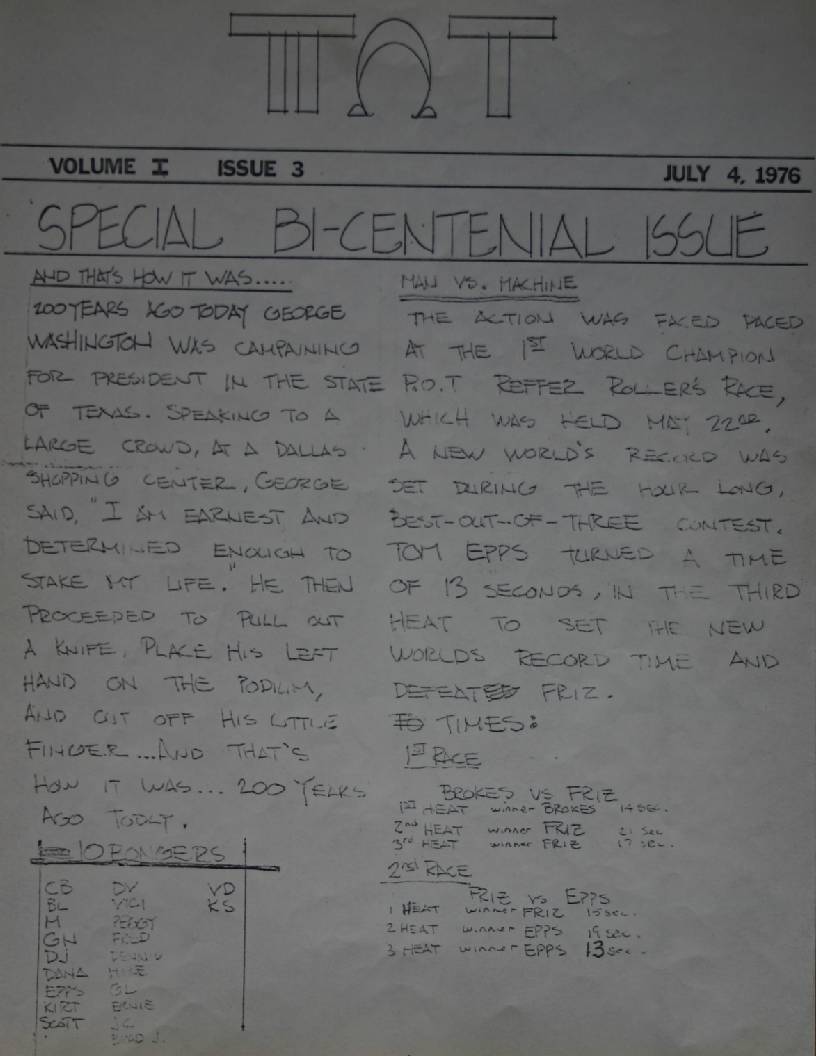 TOT
VOLUME I ISSUE 3 JULY 4, 1976
SPECIAL BI-CENTENIAL ISSUE
AND THAT'S HOW IT WAS.....
200 YEARS AGO TODAY GEORGE
WASHINGTON WAS CAMPAINING
FOR PRESIDENT IN THE STATE
OF TEXAS. SPEAKING TO A
LARGE CROWD, AT A DALLAS
SHOPPING CENTER, GEORGE
SAID, "I AM EARNEST AND
DETERMINED ENOUGH TO
STAKE MY LIFE." HE THEN
PROCEEDED TO PULL OUT
A KNIFE, PLACE HIS LEFT
HAND ON THE PODIUM,
AND CUT OFF HIS LITTLE
FINGER...AND THAT'S
HOW IT WAS... 200 YEARS
AGO TODAY.
10 BONGERS
CB DV VD
BL VICI KS
M PEGGY
GN
DJ DENNIS
DANA MIKE
EPPS BL
KIRT ERNIE
SCOTT J.C.
BRAD J.
MAN VS. MACHINE
THE ACTION WAS FACED PACED
AT THE 1ST WORLD CHAMPION
P.O.T REFFER ROLLER'S RACE,
WHICH WAS HELD MAY 22ND.
A NEW WORLD'S RECORD WAS
SET DURING THE HOUR LONG,
BEST-OUT-OF-THREE CONTEST.
TOM EPPS TURNED A TIME
OF 13 SECONDS, IN THE THIRD
HEAT TO SET THE NEW
WORLDS RECORD TIME AND
DEFEAT FRIZ.
TIMES:
1ST RACE
BROKES VS FRIZ
1ST HEAT winner BROKES 14 SEC.
2nd HEAT winner FRIZ 21 SEC
3rd HEAT winner FRIZ 17 SEC.
2nd RACE
FRIZ VS EPPS
1 HEAT winner FRIZ 15 sec.
2 HEAT winner EPPS 19 sec.
3 HEAT winner EPPS 13 sec.